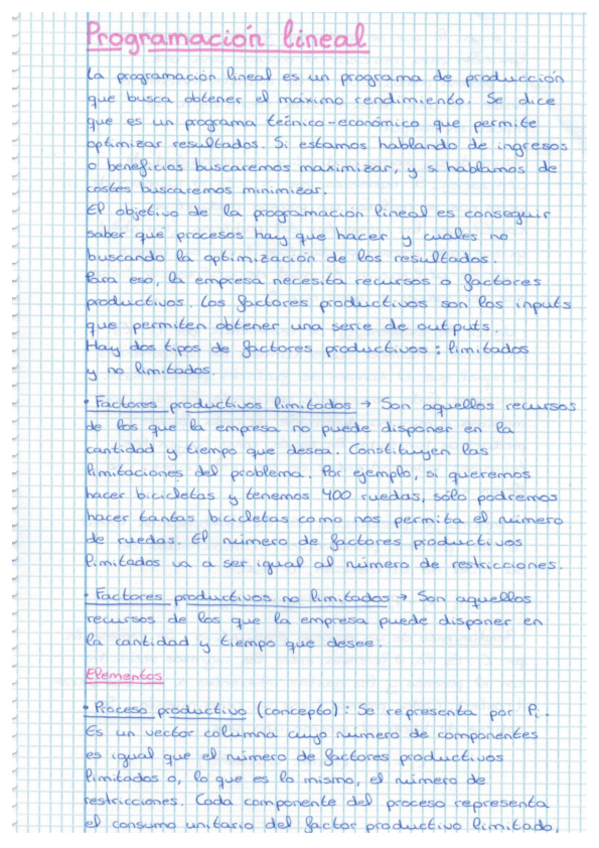 Programación lineal
La programación lineal es un programa de producción
que busca obtener el máximo rendimiento. Se dice
que es un programa técnico-económico que permite
optimizar resultados. Si estamos hablando de ingresos
o beneficios buscaremos maximizar, y si hablamos de
costes buscaremos minimizar.
El objetivo de la programación lineal es conseguir
saber qué procesos hay que hacer y cuáles no
buscando la optimización de los resultados.
Para eso, la empresa necesita recursos o factores
productivos. Los factores productivos son los inputs
que permiten obtener una serie de outputs.
Hay dos tipos de factores productivos: limitados
y no limitados.
· Factores productivos limitados → Son aquellos recursos
de los que la empresa no puede disponer en la
cantidad y tiempo que desea. Constituyen las
limitaciones del problema. Por ejemplo, si queremos
hacer bicicletas y tenemos 400 ruedas, sólo podremos
hacer tantas bicicletas como nos permita el número
de ruedas. El número de factores productivos
limitados va a ser igual al número de restricciones.
· Factores productivos no limitados → Son aquellos
recursos de los que la empresa puede disponer en
la cantidad y tiempo que desee.
Elementos
· Proceso productivo (concepto): Se representa por Pi.
Es un vector columna cuyo número de componentes
es igual que el número de factores productivos
limitados o, lo que es lo mismo, el número de
restricciones. Cada componente del proceso representa
el consumo unitario del factor productivo limitado.